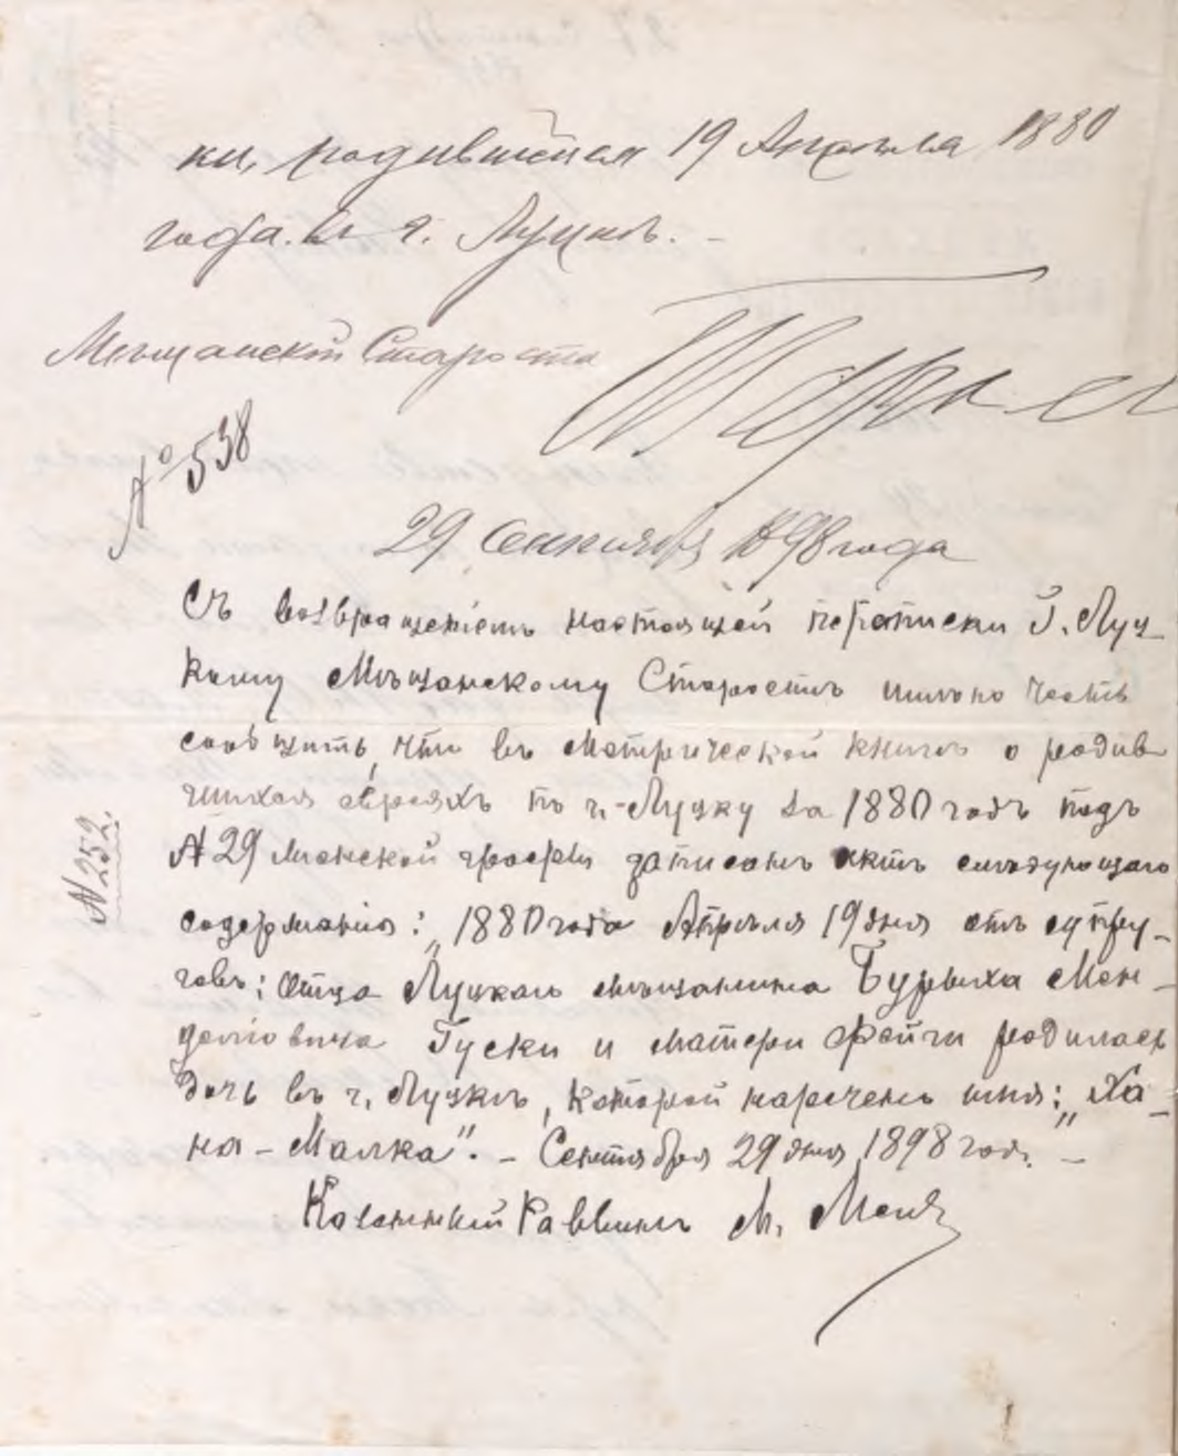 ки, родившейся 19 Апрѣля 1880
года въ г. Луцкѣ. –
Мѣщанскій Староста
№ 538
29 Сентября 1898 года
Съ возвращеніемъ настоящей переписки Г. Луц-
кому Мѣщанскому Старостѣ имѣю честь
сообщить, что въ метрической книгѣ о родив
шихся евреяхъ по г. Луцку за 1880 годъ подъ
№ 29 женской графы записанъ актъ слѣдующаго
№ 252.
содержанія: „1880 года Апрѣля 19 дня отъ супру-
говъ: отца Луцкаго мѣщанина Мен-
деліовича Гуски и матери Фейги родилась
дочь въ г. Луцкѣ, которой наречено имя: „Ха-
на-Малка". – Сентября 29 дня 1898 года. –
Казенный Раввинъ М.